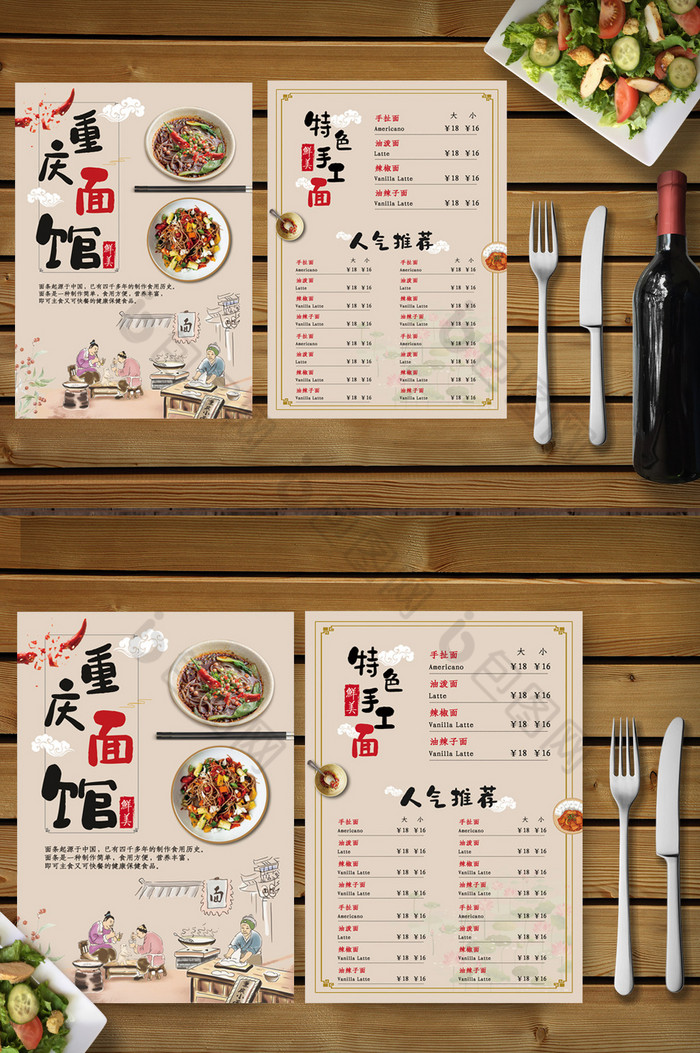 重庆面馆
鲜美
面条起源于中国，已有四千多年的制作食用历史。
面条是一种制作简单，食用方便，营养丰富，
即可主食又可快餐的健康保健食品。
面
特色手工面
鲜美
手扯面 大 小
Americano ¥18 ¥16
油泼面
Latte ¥18 ¥16
辣椒面
Vanilla Latte ¥18 ¥16
油辣子面
Vanilla Latte ¥18 ¥16
人气推荐
手扯面 大 小 手扯面 大 小
Americano ¥18 ¥16 Americano ¥18 ¥16
油泼面 油泼面
Latte ¥18 ¥16 Latte ¥18 ¥16
辣椒面 辣椒面
Vanilla Latte ¥18 ¥16 Vanilla Latte ¥18 ¥16
油辣子面 油辣子面
Vanilla Latte ¥18 ¥16 Vanilla Latte ¥18 ¥16
手扯面 手扯面
Americano ¥18 ¥16 Americano ¥18 ¥16
油泼面 油泼面
Latte ¥18 ¥16 Latte ¥18 ¥16
辣椒面 辣椒面
Vanilla Latte ¥18 ¥16 Vanilla Latte ¥18 ¥16
油辣子面 油辣子面
Vanilla Latte ¥18 ¥16 Vanilla Latte ¥18 ¥16
重庆面馆
鲜美
面条起源于中国，已有四千多年的制作食用历史。
面条是一种制作简单，食用方便，营养丰富，
即可主食又可快餐的健康保健食品。
面
特色手工面
鲜美
手扯面 大 小
Americano ¥18 ¥16
油泼面
Latte ¥18 ¥16
辣椒面
Vanilla Latte ¥18 ¥16
油辣子面
Vanilla Latte ¥18 ¥16
人气推荐
手扯面 大 小 手扯面 大 小
Americano ¥18 ¥16 Americano ¥18 ¥16
油泼面 油泼面
Latte ¥18 ¥16 Latte ¥18 ¥16
辣椒面 辣椒面
Vanilla Latte ¥18 ¥16 Vanilla Latte ¥18 ¥16
油辣子面 油辣子面
Vanilla Latte ¥18 ¥16 Vanilla Latte ¥18 ¥16
手扯面 手扯面
Americano ¥18 ¥16 Americano ¥18 ¥16
油泼面 油泼面
Latte ¥18 ¥16 Latte ¥18 ¥16
辣椒面 辣椒面
Vanilla Latte ¥18 ¥16 Vanilla Latte ¥18 ¥16
油辣子面 油辣子面
Vanilla Latte ¥18 ¥16 Vanilla Latte ¥18 ¥16
包图网